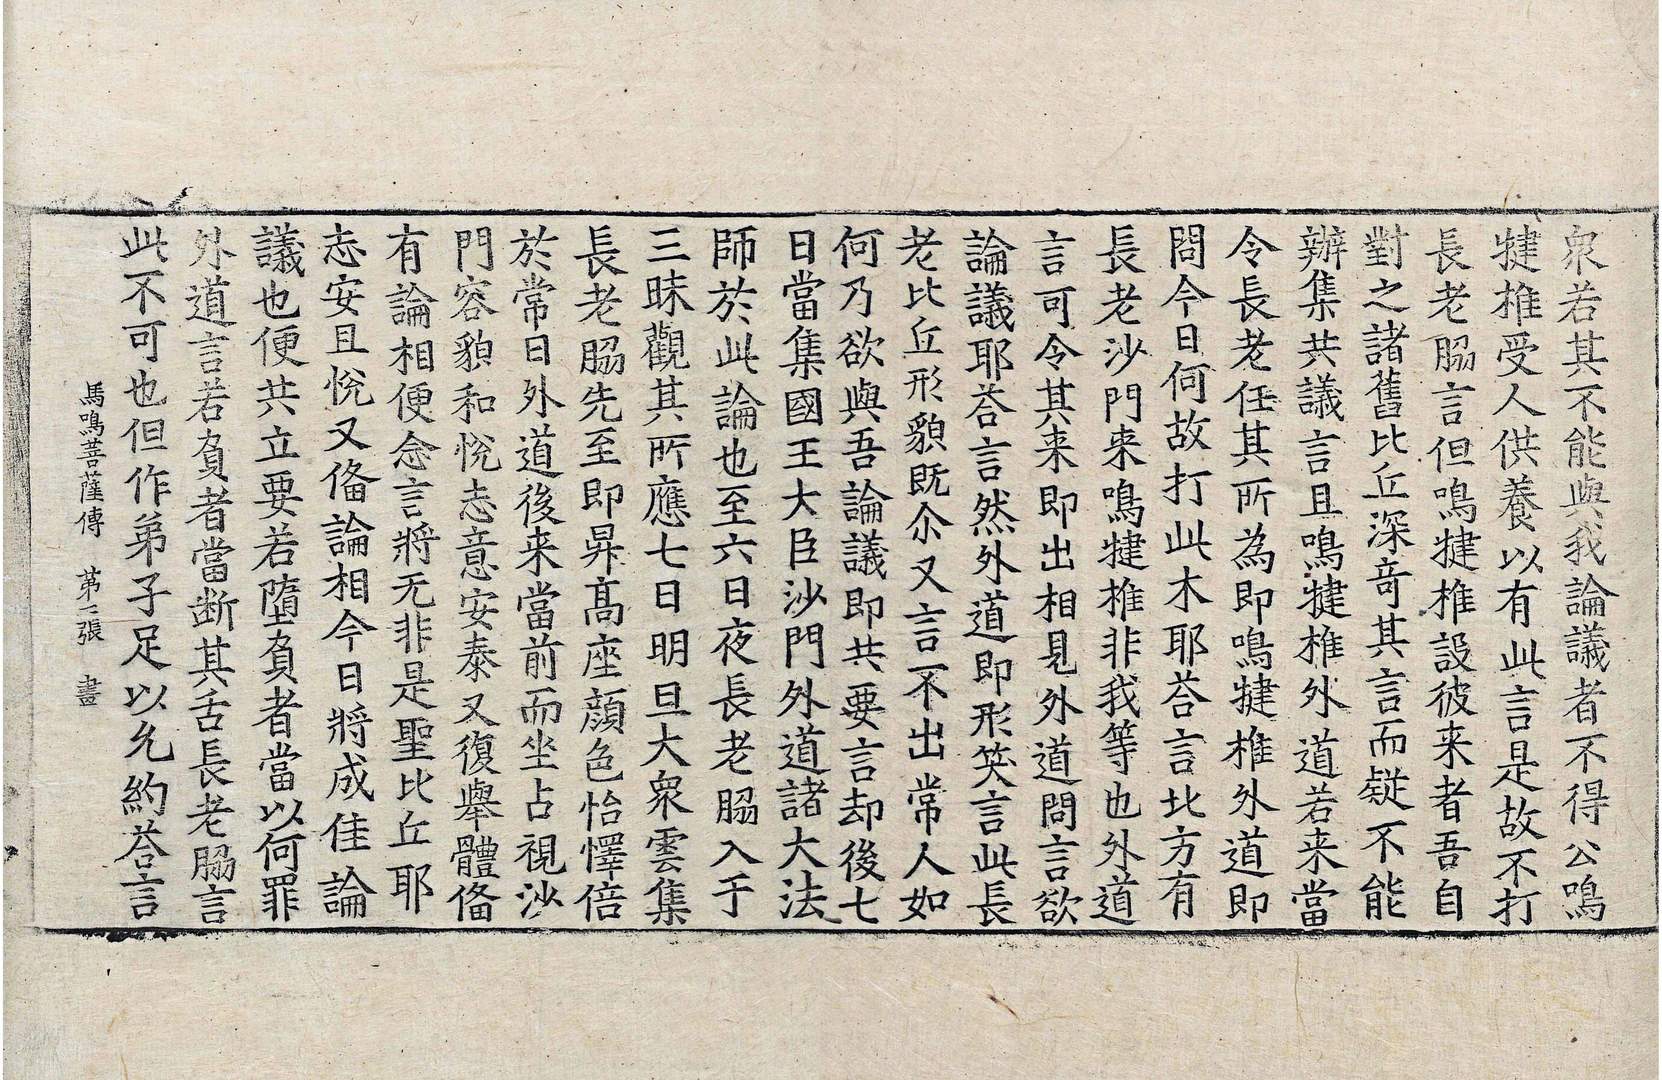 衆若其不能與我論議者不得公鳴
犍椎受人供養以有此言是故不打
長老脇言但鳴犍椎設彼来者吾自
對之諸舊比丘深竒其言而疑不能
辦集共議言且鳴犍椎外道若来當
令長老任其所為即鳴犍椎外道即
問今日何故打此木耶荅言北方有
長老沙門来鳴犍椎非我等也外道
言可令其来即出相見外道問言欲
論議耶荅言然外道即形笑言此長
老比丘形貌既尒又言不出常人如
何乃欲與吾論議即共要言却後七
日當集國王大臣沙門外道諸大法
師於此論也至六日夜長老脇入于
三昧觀其所應七日明旦大衆雲集
長老脇先至即昇髙座顔色怡懌倍
於常日外道後来當前而坐占視沙
門容貌和悅志意安泰又復舉體俻
有論相便念言將无非是聖比丘耶
志安且悅又俻論相今日將成佳論
議也便共立要若墮負者當以何罪
外道言若負者當断其舌長老脇言
此不可也但作弟子足以允約荅言
馬鳴菩薩傳 第一張 畫